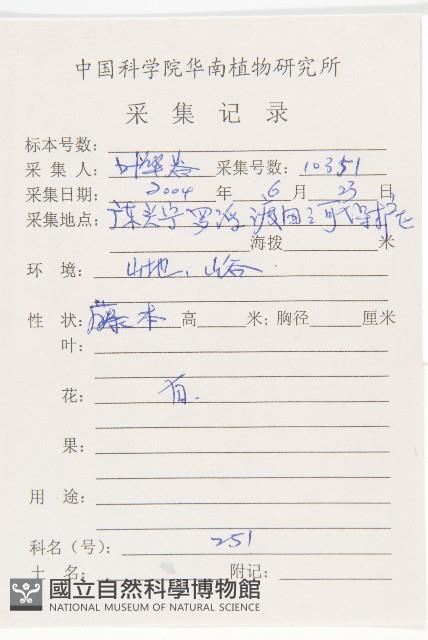 中国科学院华南植物研究所
采集记录
标本号数：
采集人：叶华谷 采集号数：10351
采集日期：2004年6月23日
采集地点：广东兴宁罗浮渡田河保护区
海拨 米
环境：山地，山谷
性状：藤本 高 米；胸径 厘米
叶：
花：有.
果：
用途：
科名（号）：251
土名： 附记：
國立自然科學博物館
NATIONAL MUSEUM OF NATURAL SCIENCE